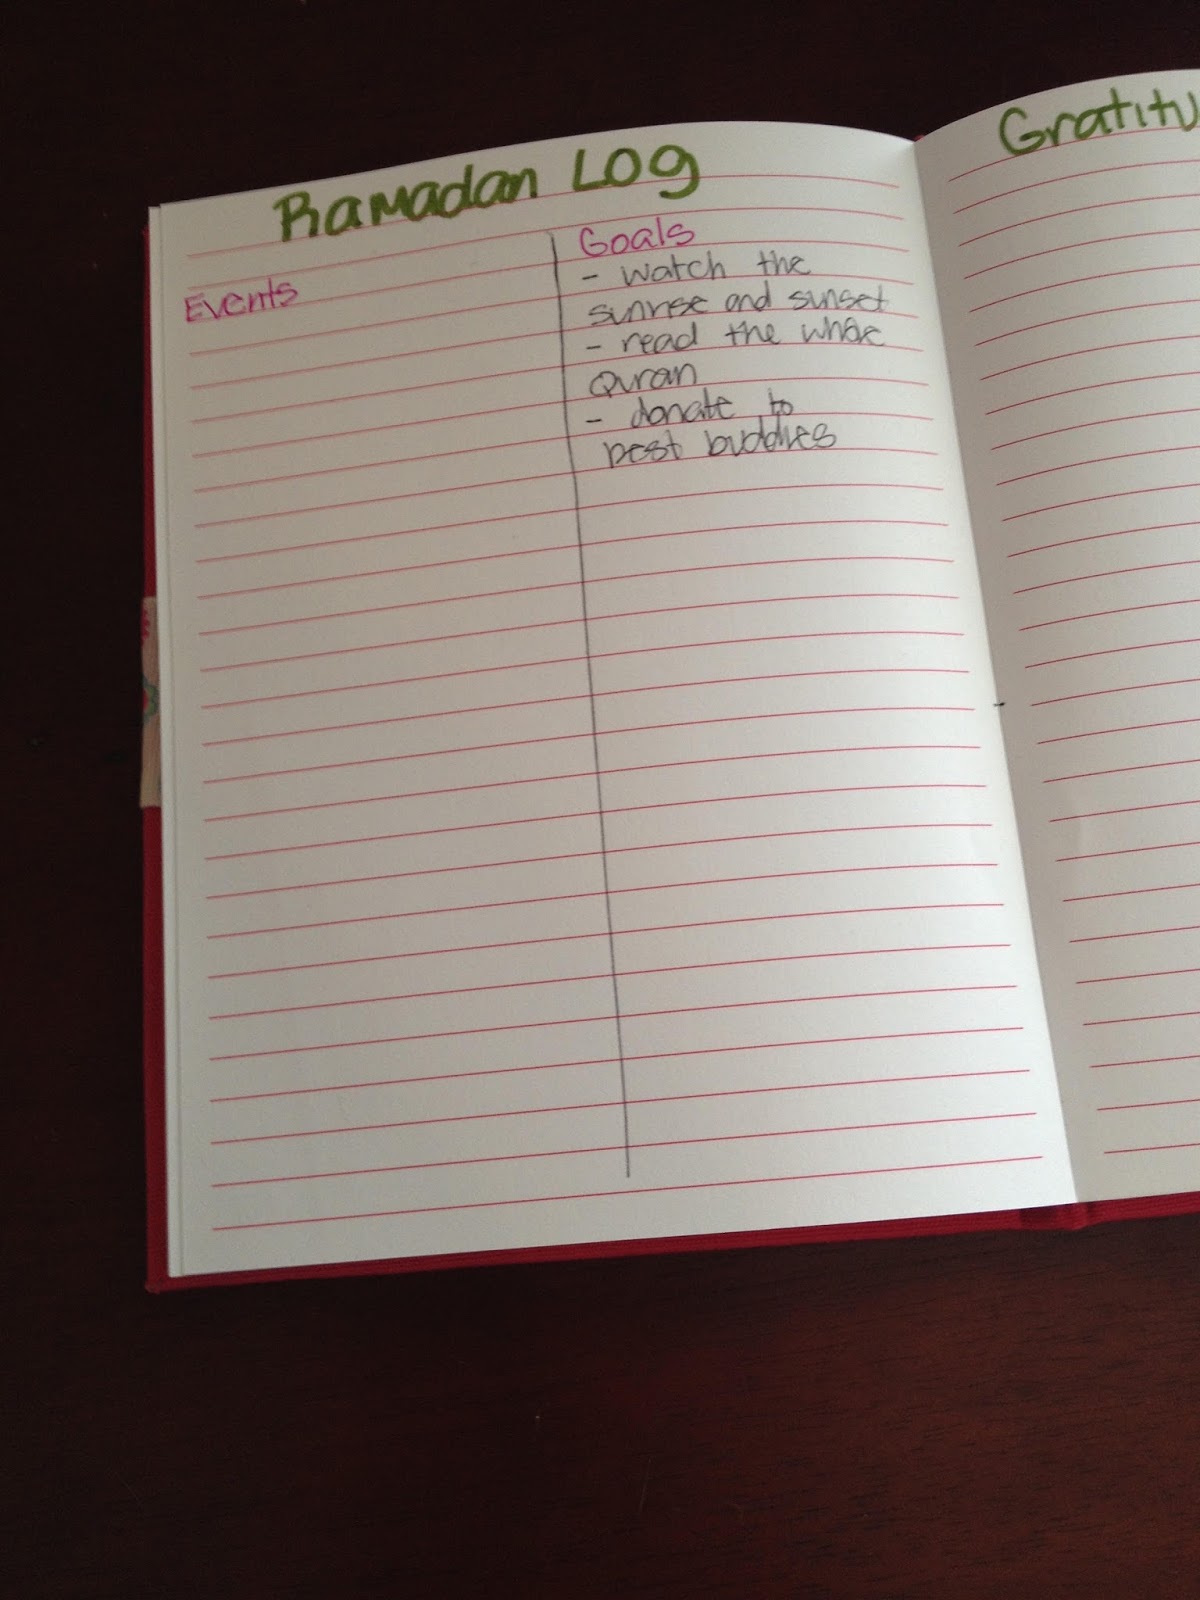 Ramadan Log
Events
Goals
- watch the
sunrise and sunset
- read the whole
Quran
- donate to
best buddies
Gratitu